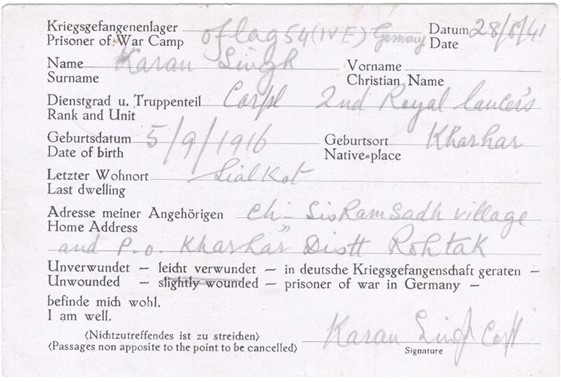 Kriegsgefangenenlager
Prisoner of War Camp oflag 54 (IV E) Germany Datum 28/6/41
Date
Name Karan Singh Vorname
Surname Christian Name
Dienstgrad u. Truppenteil Corpl 2nd Royal lancers
Rank and Unit
Geburtsdatum 5/9/1916 Geburtsort Kharhar
Date of birth Native-place
Letzter Wohnort Sialkot
Last dwelling
Adresse meiner Angehörigen Ch- SisRamSadh village
Home Address
and P.O. Kharhar" Distt Rohtak
Unverwundet – leicht verwundet – in deutsche Kriegsgefangenschaft geraten –
Unwounded – slightly wounded – prisoner of war in Germany –
befinde mich wohl.
I am well.
(Nichtzutreffendes ist zu streichen) Karan Singh Corpl
(Passages non apposite to the point to be cancelled) Signature